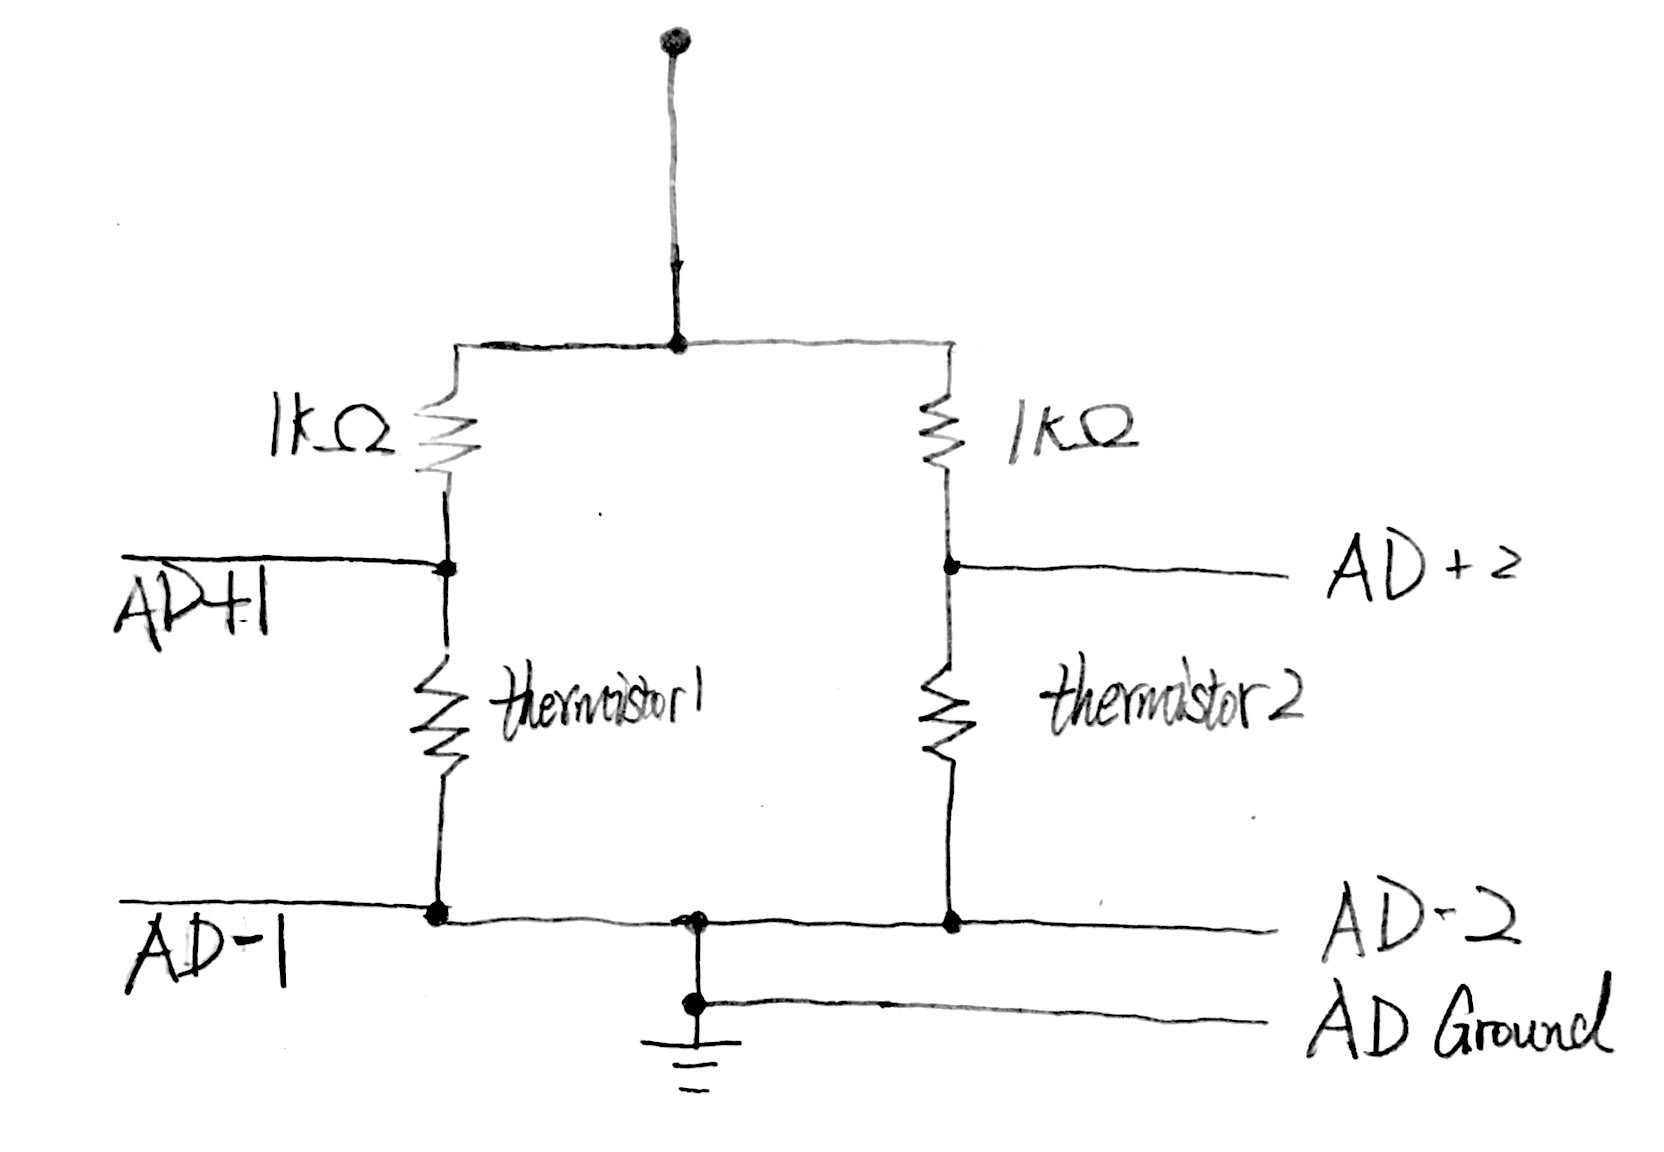 1kΩ
1kΩ
AD+1
AD+2
thermistor1
thermistor2
AD-1
AD-2
AD Ground